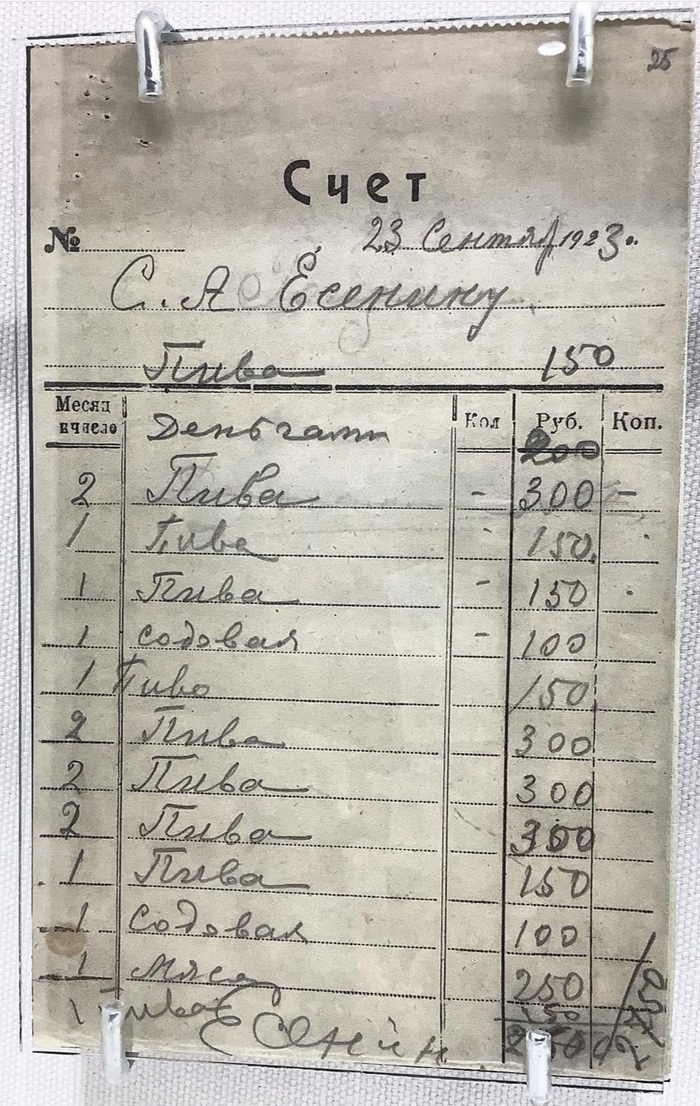 25
Счет
№ 23 Сентяб 1923.
С. А Есенину
Пива 150
Месяц и число Кол Руб. Коп.
Деньгами 200
2 Пива - 300 -
1 Пива 150
1 Пива - 150
1 содовая - 100
1 Пиво 150
2 Пива 300
2 Пива 300
2 Пива 300
1 Пива 150
1 Содовая 100
1 Мясо 250
1 Пива 150
Есенин